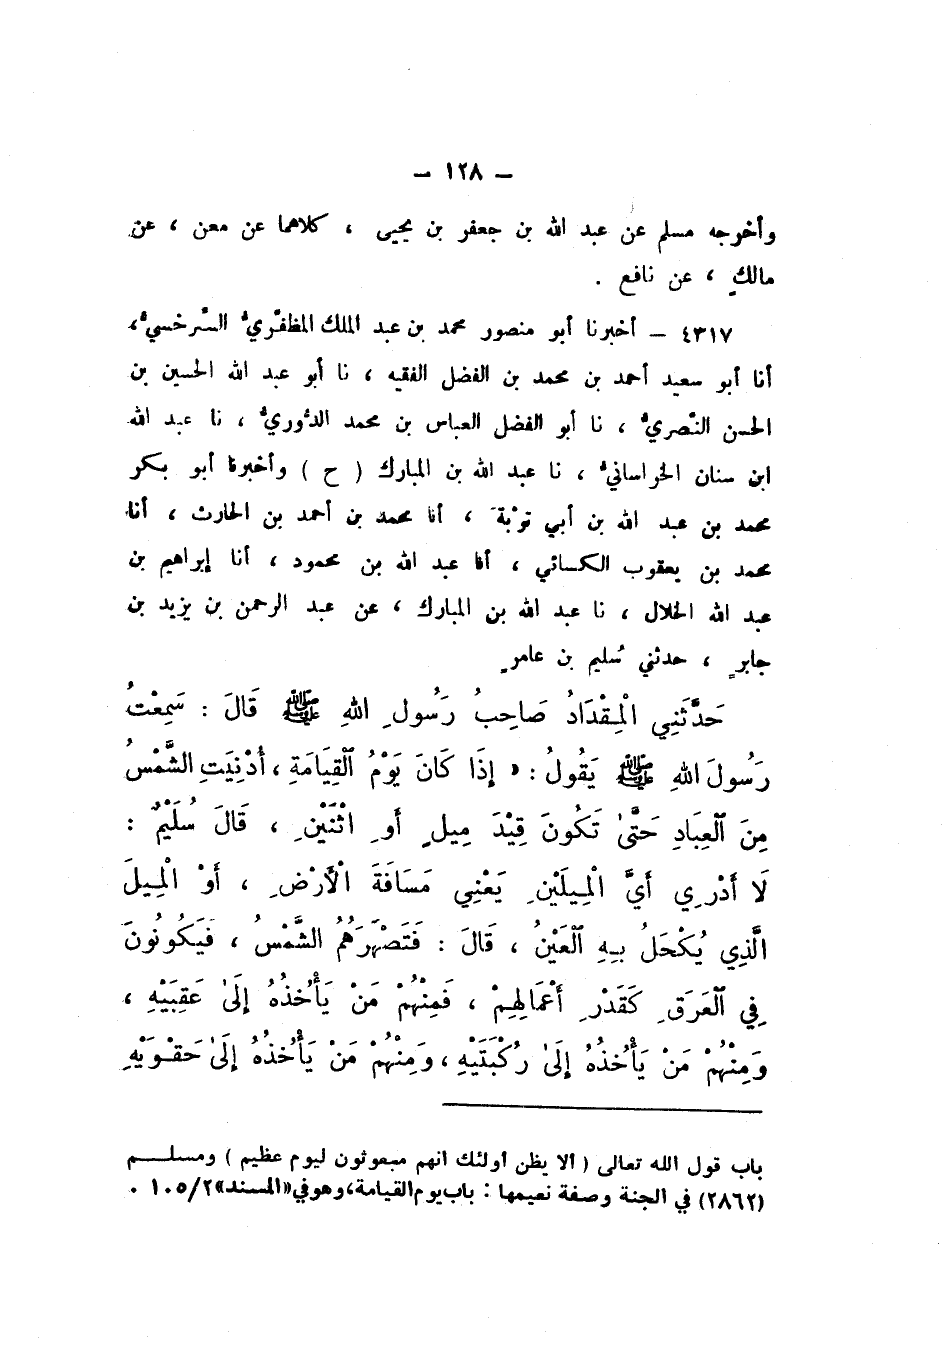 — ١٢٨ —
وأخرجه مسلم عن عبد الله بن جعفر بن يحيى ، كلاهما عن معن ، عن
مالكٍ ، عن نافع .
٤٣١٧ — أخبرنا أبو منصور محمد بن عبد الملك المظفّريُّ السَّرخسيُّ،
أنا أبو سعيد أحمد بن محمد بن الفضل الفقيه ، نا أبو عبد الله الحسين بن
الحسن النَّصريُّ ، نا أبو الفضل العباس بن محمد الدُّوريُّ ، نا عبد الله
ابن سنان الخراسانيُّ ، نا عبد الله بن المبارك ( ح ) وأخبرنا أبو بكر
محمد بن عبد الله بن أبي توْبةَ ، أنا محمد بن أحمد بن الحارث ، أنا
محمد بن يعقوب الكسائي ، أنا عبد الله بن محمود ، أنا إبراهيم بن
عبد الله الخلال ، نا عبد الله بن المبارك ، عن عبد الرحمن بن يزيد بن
جابرٍ ، حدثني سُليم بن عامرٍ
حَدَّثَنِي الْمِقْدَادُ صَاحِبُ رَسُولِ اللهِ ﷺ قَالَ : سَمِعْتُ
رَسُولَ اللهِ ﷺ يَقُولُ : « إِذَا كَانَ يَوْمُ الْقِيَامَةِ ، أُدْنِيَتِ الشَّمْسُ
مِنَ الْعِبَادِ حَتَّىٰ تَكُونَ قِيْدَ مِيلٍ أَوِ اثْنَيْنِ ، قَالَ سُلَيْمٌ :
لَا أَدْرِي أَيَّ الْمِيلَيْنِ يَعْنِي مَسَافَةَ الْأَرْضِ ، أَوْ الْمِيلَ
الَّذِي يُكْحَلُ بِهِ الْعَيْنُ ، قَالَ : فَتَصْهَرُهُمُ الشَّمْسُ ، فَيَكُونُونَ
فِي الْعَرَقِ كَقَدْرِ أَعْمَالِهِمْ ، فَمِنْهُمْ مَنْ يَأْخُذُهُ إِلَىٰ عَقِبَيْهِ ،
وَمِنْهُمْ مَنْ يَأْخُذُهُ إِلَىٰ رُكْبَتَيْهِ ، وَمِنْهُمْ مَنْ يَأْخُذُهُ إِلَىٰ حَقْوَيْهِ
باب قول الله تعالى ( ألا يظن أولئك انهم مبعوثون ليوم عظيم ) ومسلم
(٢٨٦٢) في الجنة وصفة نعيمها : باب يوم القيامة، وهو في «المسند» ١٠٥/٢ .